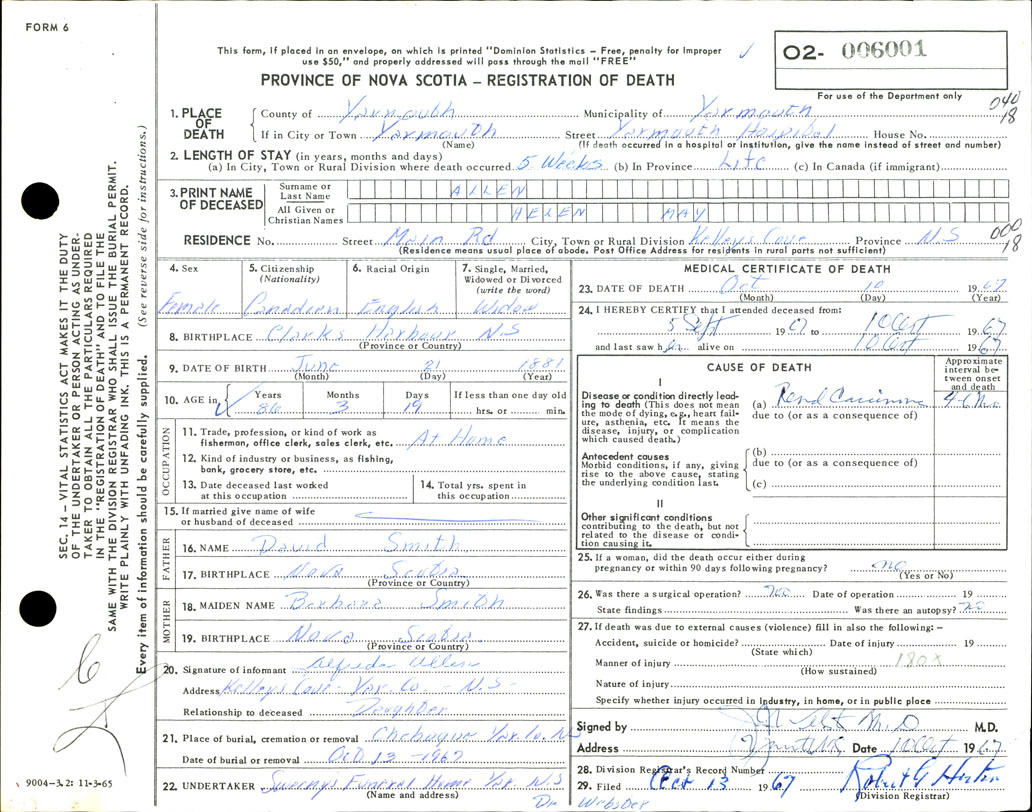 FORM 6
This form, if placed in an envelope, on which is printed "Dominion Statistics – Free, penalty for improper
use $50," and properly addressed will pass through the mail "FREE"
PROVINCE OF NOVA SCOTIA – REGISTRATION OF DEATH
02- 006001
For use of the Department only
040
18
1. PLACE OF DEATH
County of Yarmouth Municipality of Yarmouth
If in City or Town Yarmouth Street Yarmouth Hospital House No.
(Name) (If death occurred in a hospital or institution, give the name instead of street and number)
2. LENGTH OF STAY (in years, months and days)
(a) In City, Town or Rural Division where death occurred 5 Weeks (b) In Province Life (c) In Canada (if immigrant)
3. PRINT NAME OF DECEASED
Surname or Last Name ALLEN
All Given or Christian Names HELEN MAY
000
18
RESIDENCE No. Street Main Rd City, Town or Rural Division Kelleys Cove Province N.S
(Residence means usual place of abode. Post Office Address for residents in rural parts not sufficient)
4. Sex Female
5. Citizenship (Nationality) Canadian
6. Racial Origin English
7. Single, Married, Widowed or Divorced (write the word) Widow
8. BIRTHPLACE Clarks Harbour N.S
(Province or Country)
9. DATE OF BIRTH June 21 1881
(Month) (Day) (Year)
10. AGE in Years 86 Months 3 Days 19 If less than one day old hrs. or min.
OCCUPATION
11. Trade, profession, or kind of work as
fisherman, office clerk, sales clerk, etc. At Home
12. Kind of industry or business, as fishing,
bank, grocery store, etc.
13. Date deceased last worked
at this occupation
14. Total yrs. spent in
this occupation
15. If married give name of wife
or husband of deceased
FATHER
16. NAME David Smith
17. BIRTHPLACE Nova Scotia
(Province or Country)
MOTHER
18. MAIDEN NAME Barbara Smith
19. BIRTHPLACE Nova Scotia
(Province or Country)
20. Signature of informant Alfreda Allen
Address Kelleys Cove - Yar. Co. - N.S -
Relationship to deceased Daughter
21. Place of burial, cremation or removal Chebogue Yar. Co. N
Date of burial or removal Oct 13 - 1967
22. UNDERTAKER Sweeny's Funeral Home Yar. N.S
(Name and address)
Dr. Webster
MEDICAL CERTIFICATE OF DEATH
23. DATE OF DEATH Oct 10 1967
(Month) (Day) (Year)
24. I HEREBY CERTIFY that I attended deceased from:
5 Sept 1967 to 10 Oct 1967
and last saw her alive on 10 Oct 1967
CAUSE OF DEATH
Approximate interval between onset and death
I
Disease or condition directly leading to death (This does not mean the mode of dying, e.g., heart failure, asthenia, etc. It means the disease, injury, or complication which caused death.)
(a) Renal Carcinoma
due to (or as a consequence of)
Antecedent causes
Morbid conditions, if any, giving rise to the above cause, stating the underlying condition last.
(b)
due to (or as a consequence of)
(c)
II
Other significant conditions
contributing to the death, but not related to the disease or condition causing it.
25. If a woman, did the death occur either during
pregnancy or within 90 days following pregnancy? no
(Yes or No)
26. Was there a surgical operation? no Date of operation 19
State findings Was there an autopsy? no
27. If death was due to external causes (violence) fill in also the following: –
Accident, suicide or homicide? Date of injury 19
(State which)
Manner of injury 180X
(How sustained)
Nature of injury
Specify whether injury occurred in industry, in home, or in public place
Signed by M.D. M.D.
Address Date 10 Oct 1967
28. Division Registrar's Record Number
29. Filed Oct 13 1967 Robert G Horton
(Division Registrar)
SEC. 14 – VITAL STATISTICS ACT MAKES IT THE DUTY
OF THE UNDERTAKER OR PERSON ACTING AS UNDER-
TAKER TO OBTAIN ALL THE PARTICULARS REQUIRED
IN THE "REGISTRATION OF DEATH" AND TO FILE THE
SAME WITH THE DIVISION REGISTRAR WHO SHALL ISSUE THE BURIAL PERMIT.
WRITE PLAINLY WITH UNFADING INK. THIS IS A PERMANENT RECORD.
Every item of information should be carefully supplied. (See reverse side for instructions.)
9004-3.2: 11-3-65